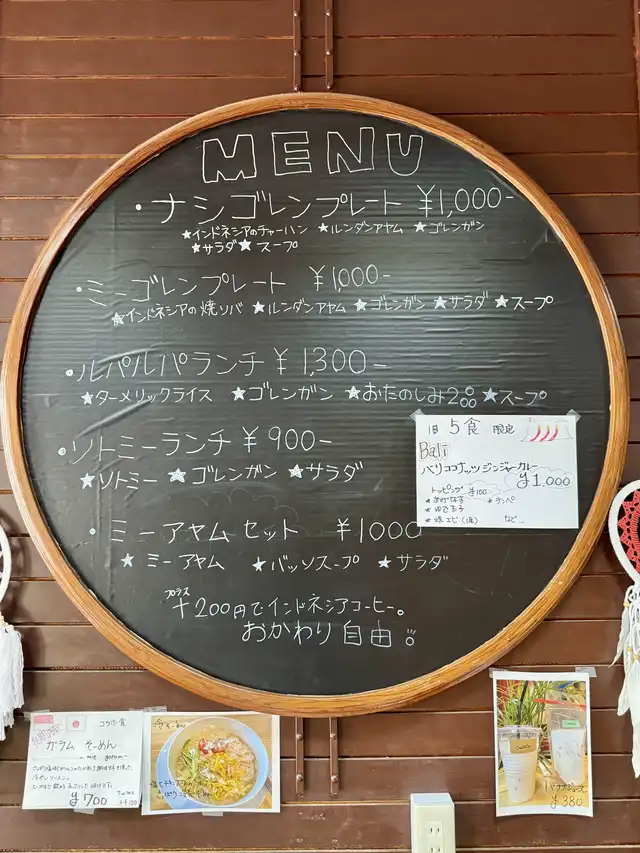 MENU
・ナシゴレンプレート ¥1,000-
★インドネシアのチャーハン ★ルンダンアヤム ★ゴレンガン
★サラダ★スープ
・ミーゴレンプレート ¥1,000-
★インドネシアの焼ソバ ★ルンダンアヤム ★ゴレンガン ★サラダ ★スープ
・ルパルパランチ ¥1,300-
★ターメリックライス ★ゴレンガン ★おたのしみ2コ ★スープ
・ソトミーランチ ¥900-
★ソトミー ★ゴレンガン ★サラダ
・ミーアヤムセット ¥1000
★ミーアヤム ★バッソスープ ★サラダ
プラス
+200円でインドネシアコーヒー。
おかわり自由!!
1日5食限定
Bali
バリココナッツジンジャーカレー
¥1,000
トッピング ¥100
★あげなす ★テンペ
★ゆで玉子
★焼エビ など
コラボ食
ガラム そーめん
¥700
¥380